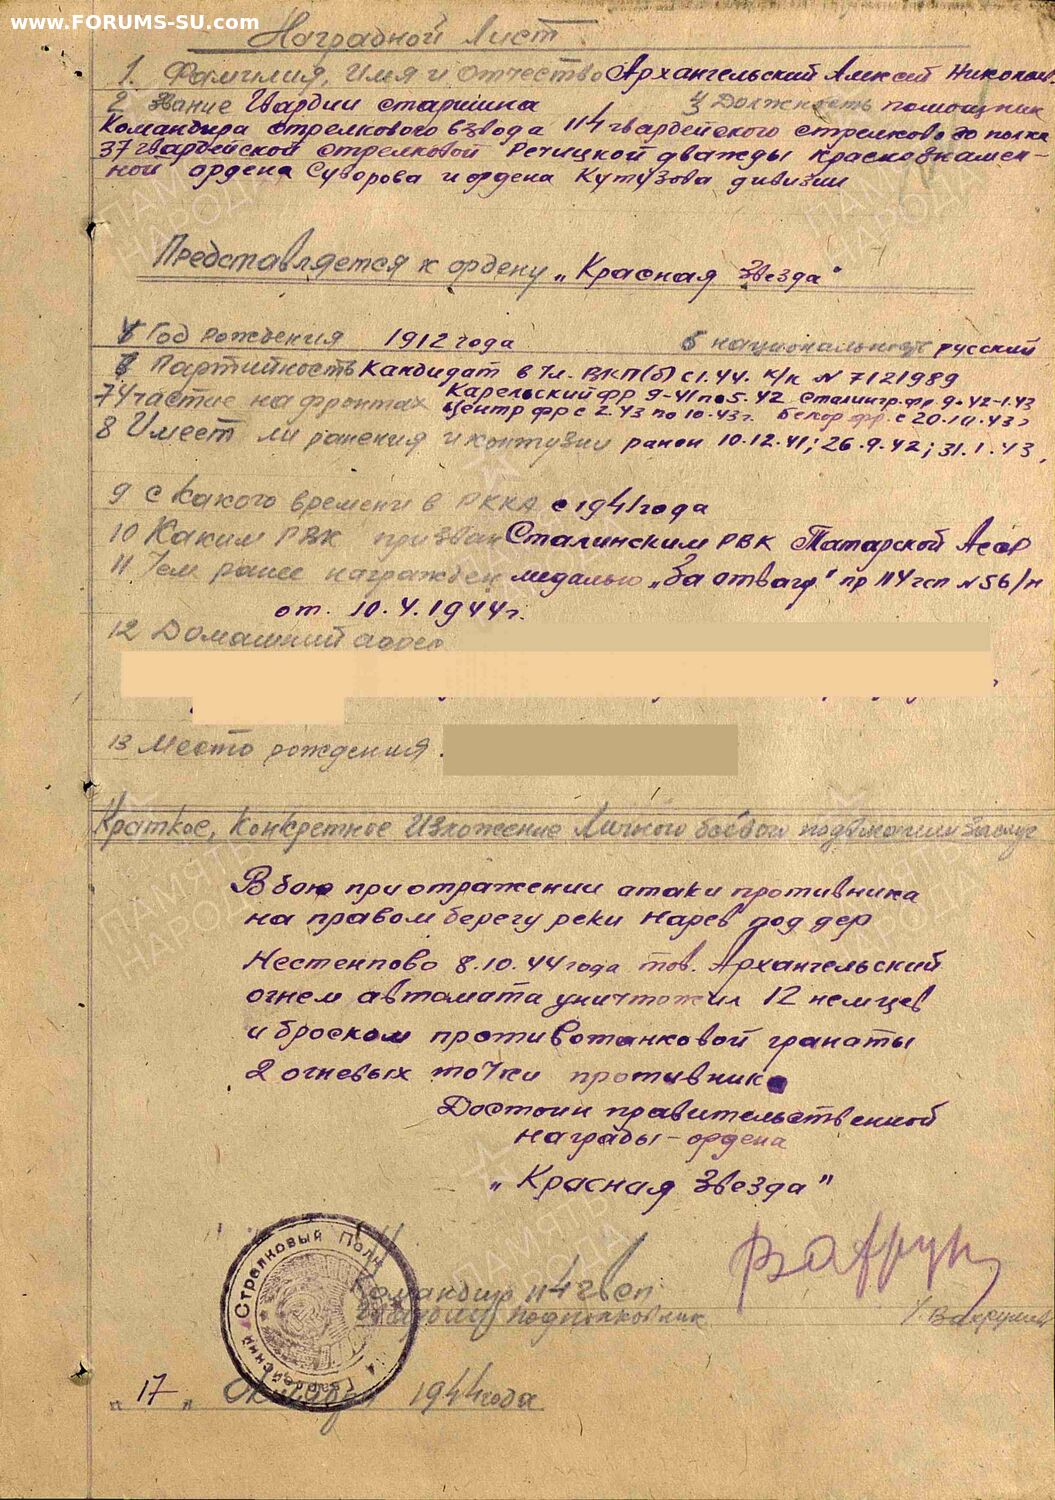 www.FORUMS-SU.com
Наградной Лист
1. Фамилия, Имя и Отчество Архангельский Алексей Николаев.
2 Звание Гвардии старшина 3 Должность помощник
Командира стрелкового взвода 114 гвардейского стрелкового полка
37 гвардейской стрелковой Речицкой дважды краснознамен-
ной ордена Суворова и ордена Кутузова дивизии
Представляется к ордену „Красная Звезда"
4 Год рождения 1912 года 5 национальность русский
6 Партийность Кандидат в чл. ВКП(б) с 1.44. к/к N 7121989
7 Участие на фронтах Карельский фр 9-41 по 5.42 Сталингр.фр 9-42-1.43
Центр фр с 2.43 по 10.43г. Белор фр. с 20.10.43г
8 Имеет ли ранения и контузии ранен 10.12.41; 26.9.42; 31.1.43,
9 С какого времени в РККА с 1941 года
10 Каким РВК призван Сталинским РВК Татарской АССР
11 Чем ранее награжден медалью „За отвагу" пр 114 гсп N 56/н
от. 10.4.1944г.
12 Домашний адрес
13 Место рождения.
Краткое, Конкретное Изложение Личного боевого подвига или заслуг
В бою при отражении атаки противника
на правом берегу реки Нарев под дер
Нестемпово 8.10.44 года тов. Архангельский
огнем автомата уничтожил 12 немцев
и броском противотанковой гранаты
2 огневых точки противника
Достоин правительственной
награды - ордена
„Красная Звезда"
Командир 114 гвсп
Гвардии подполковник
Стрелковый Полк
Гвардейский
„17" Октября 1944 года
ПАМЯТЬ НАРОДА